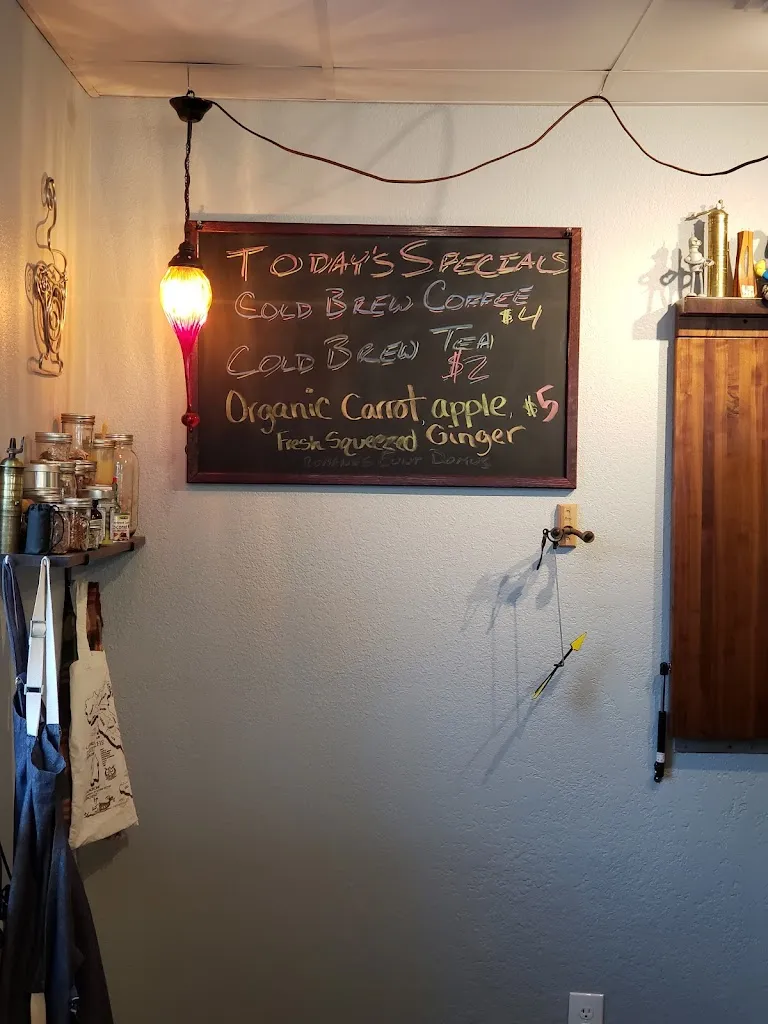 TODAY'S SPECIALS
COLD BREW COFFEE
$4
COLD BREW TEA
$2
Organic Carrot, apple, $5
Fresh Squeezed Ginger